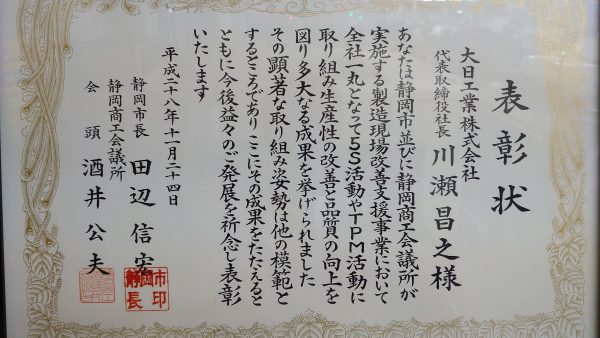 表彰状
大日工業株式会社
代表取締役社長 川瀬昌之様
あなたは静岡市並びに静岡商工会議所が
実施する製造現場改善支援事業において
全社一丸となって5S活動やTPM活動に
取り組み生産性の改善と品質の向上を
図り多大なる成果を挙げられました
その顕著な取り組み姿勢は他の模範と
するところでありここにその成果をたたえると
ともに今後益々のご発展を祈念し表彰
いたします
平成二十八年十一月二十四日
静岡市長 田辺信宏
静岡商工会議所
会頭 酒井公夫
静岡市長印